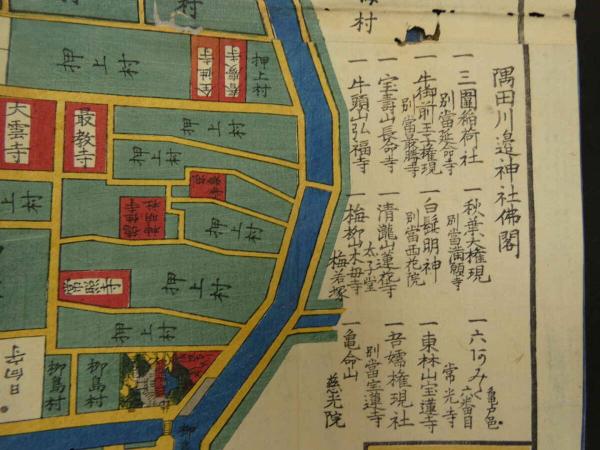 隅田川邉神社佛閣
一 三圍稲荷社
別當延命寺
一 秋葉大権現
別當満願寺
一 六あみだ
亀戸邑
六番目
常光寺
一 牛御前王子権現
別當最勝寺
一 白髭明神
別當西花院
一 東林山宝蓮寺
一 宝壽山長命寺
一 清瀧山蓮花寺
太子堂
一 吾嬬権現社
別當宝蓮寺
一 牛頭山弘福寺
一 梅柳山木母寺
梅若塚
一 亀命山
慈光院
村
押上村
押上村
最教寺
大雲寺
押上村
押上村
押上村
神明社
押上村
押上村
押上村
押上村
柳島村
柳島村